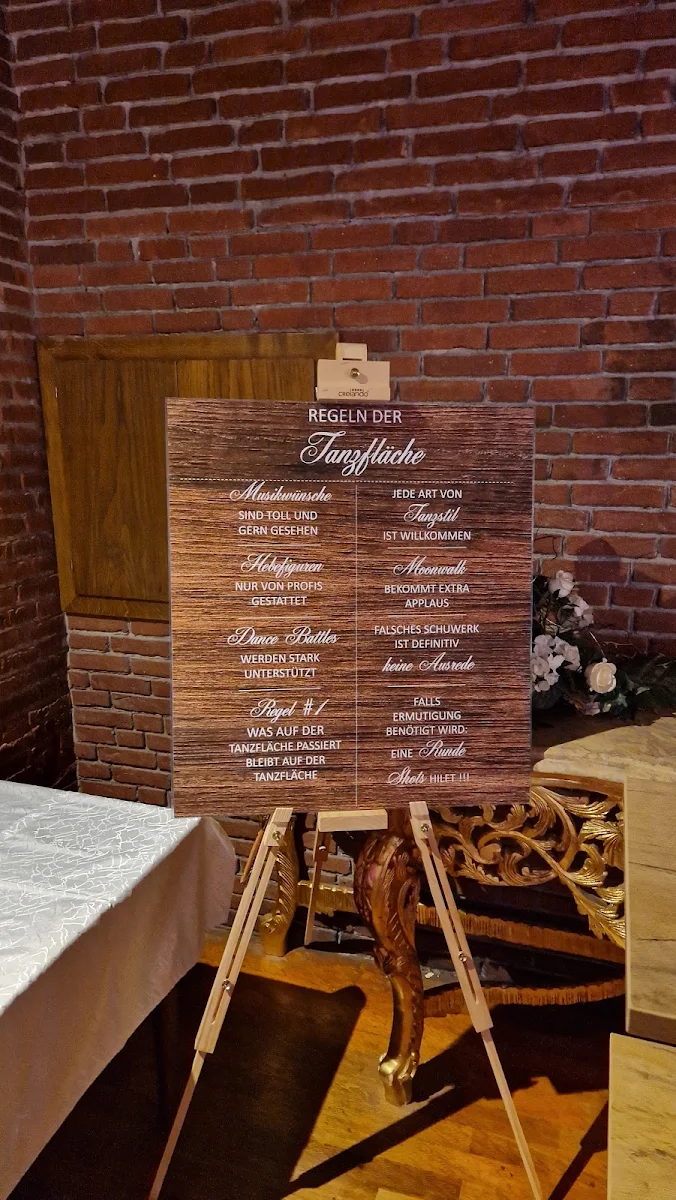 crelando
REGELN DER
Tanzfläche
Musikwünsche
SIND TOLL UND
GERN GESEHEN
Hebefiguren
NUR VON PROFIS
GESTATTET
Dance Battles
WERDEN STARK
UNTERSTÜTZT
Regel #1
WAS AUF DER
TANZFLÄCHE PASSIERT
BLEIBT AUF DER
TANZFLÄCHE
JEDE ART VON
Tanzstil
IST WILLKOMMEN
Moonwalk
BEKOMMT EXTRA
APPLAUS
FALSCHES SCHUWERK
IST DEFINITIV
keine Ausrede
FALLS
ERMUTIGUNG
BENÖTIGT WIRD:
EINE Runde
Shots HILET !!!